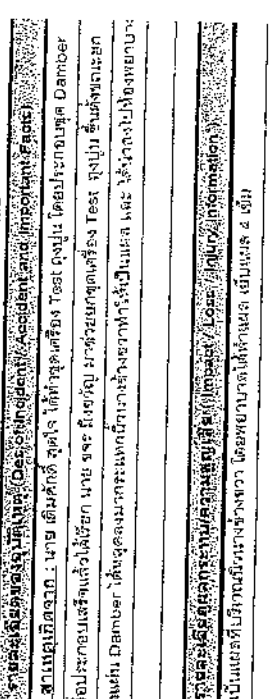 รายละเอียดของอุบัติเหตุ (Des of Incident) (Accident and Important Facts)
สาเหตุเกิดจาก : นาย เติมศักดิ์ สุดใจ ได้ทำชุดเครื่อง Test ถุงปูน โดยประกอบชุด Damber
อประกอบเสร็จแล้วได้เรียก นาย ขจร มาช่วยยกชุดเครื่อง Test ถุงปูน ขึ้นตั้งขณะยก
แผ่น Damber ได้หลุดลงมากระแทกนิ้วนางข้างขวาทำให้เป็นแผล และ ได้นำส่งไปห้องพยาบา
รายละเอียดผลกระทบ/ความสูญเสีย (Impact / Loss / Injury Information)
เป็นแผลที่บริเวณนิ้วนางข้างขวา โดยพยาบาลได้ทำแผล เย็บแผล ๔ เข็ม